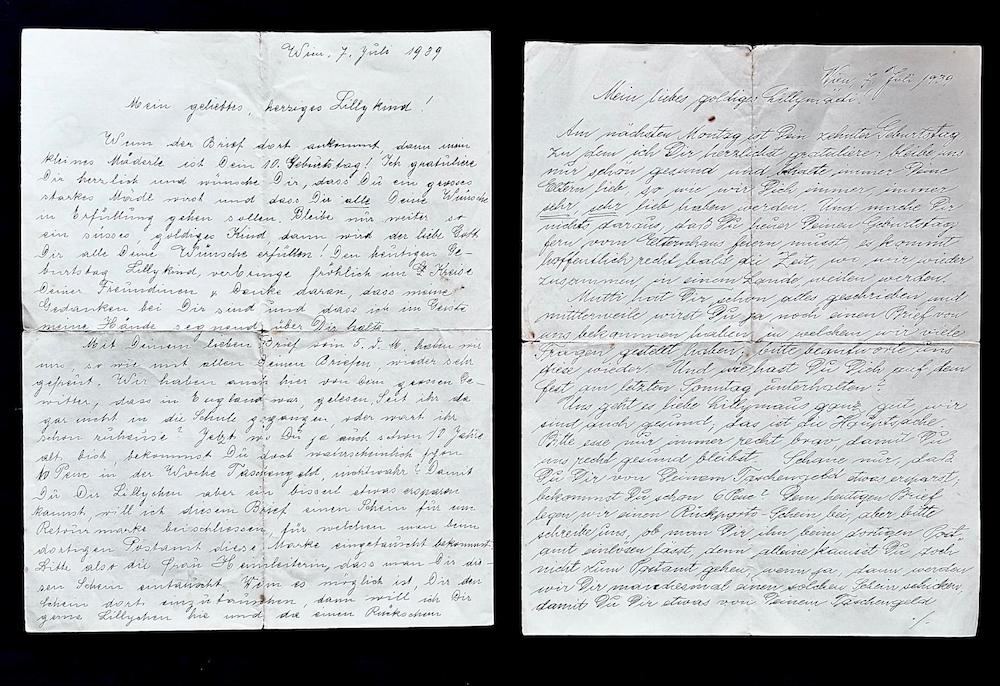 Wien, 7. Juli 1939
Mein geliebtes, herziges Lillykind!
Wenn der Brief dort ankommt, dann mein
kleines Maderle ist Dein 10. Geburtstag! Ich gratuliere
Dir herzlich und wünsche Dir, dass Du ein grosses
starkes Madl wirst und dass Dir alle Deine Wünsche
in Erfüllung gehen sollen. Bleibe nur weiter so
ein süsses, goldiges Kind dann wird der liebe Gott
Dir alle Deine Wünsche erfüllen! Den heutigen Ge-
burtstag Lillykind, verbringe fröhlich im Kreise
Deiner Freundinen & Denke daran, dass meine
Gedanken bei Dir sind und dass ich im Geiste
meine Hände segnend über Dir halte.
Mit Deinem lieben Brief vom 5. d. M. haben wir
uns, so wie mit allen Deinen Briefen, wieder sehr
gefreut. Wir haben auch hier von dem grossen Ge-
witter, dass in England war, gelesen. Seit ihr da
gar nicht in die Schule gegangen, oder wart ihr
schon zuhause? Jetzt wo Du ja auch schon 10 Jahre
alt, bist, bekommst Du doch warscheinlich schon
Penc in der Woche Taschengeld, nichtwahr? Damit
Du Dir Lillychen aber ein bisserl etwas ersparen
kannst, will ich diesem Brief einen Schein für eine
Retourmarke beischliessen, für welchen man beim
dortigen Postamt diese Marke eingetauscht bekommt.
Bitte also die Frau Heimleiterin, dass man Dir die-
sen Schein eintauscht. Wenn es möglich ist, Dir den
Schein dort einzutauschen, dann will ich Dir
gerne Lillychen hie und da einen Rückschein
Wien, 7. Juli 1939
Mein liebes goldiges Lillymädi!
Am nächsten Montag ist Dein zehnter Geburtstag
zu dem ich Dir herzlichst gratuliere, bleibe uns
nur schön gesund und behalte immer Deine
Eltern lieb, so wie wir Dich immer immer
sehr, sehr lieb haben werden. Und mache Dir
nichts daraus, daß Du heuer Deinen Geburtstag
fern vom Elternhaus feiern musst, es kommt
hoffentlich recht bald die Zeit, wo wir wieder
zusammen in einem Lande weilen werden.
Mutti hat Dir schon alles geschrieben und
mittlerweile wirst Du ja noch einen Brief von
uns bekommen haben, in welchem wir viele
Fragen gestellt haben, bitte beantworte uns
diese wieder. Und wie hast Du Dich auf dem
Fest am letzten Sonntag unterhalten?
Uns geht es liebe Lillymaus ganz gut, wir
sind auch gesund, das ist die Hauptsache.
Bitte esse nur immer recht brav, damit Du
uns recht gesund bleibst. Schaue nur, daß
Du Dir von Deinem Taschengeld etwas ersparst,
bekommst Du schon 6 Penc? Dem heutigen Brief
legen wir einen Rückporto-Schein bei, aber bitte
schreibe uns, ob man Dir ihn beim dortigen Post-
amt einlösen lässt, denn alleine kannst Du doch
nicht zum Postamt gehen, wenn ja, dann werden
wir Dir manchesmal einen solchen Schein schicken,
damit Du Dir etwas von Deinem Taschengeld
./.